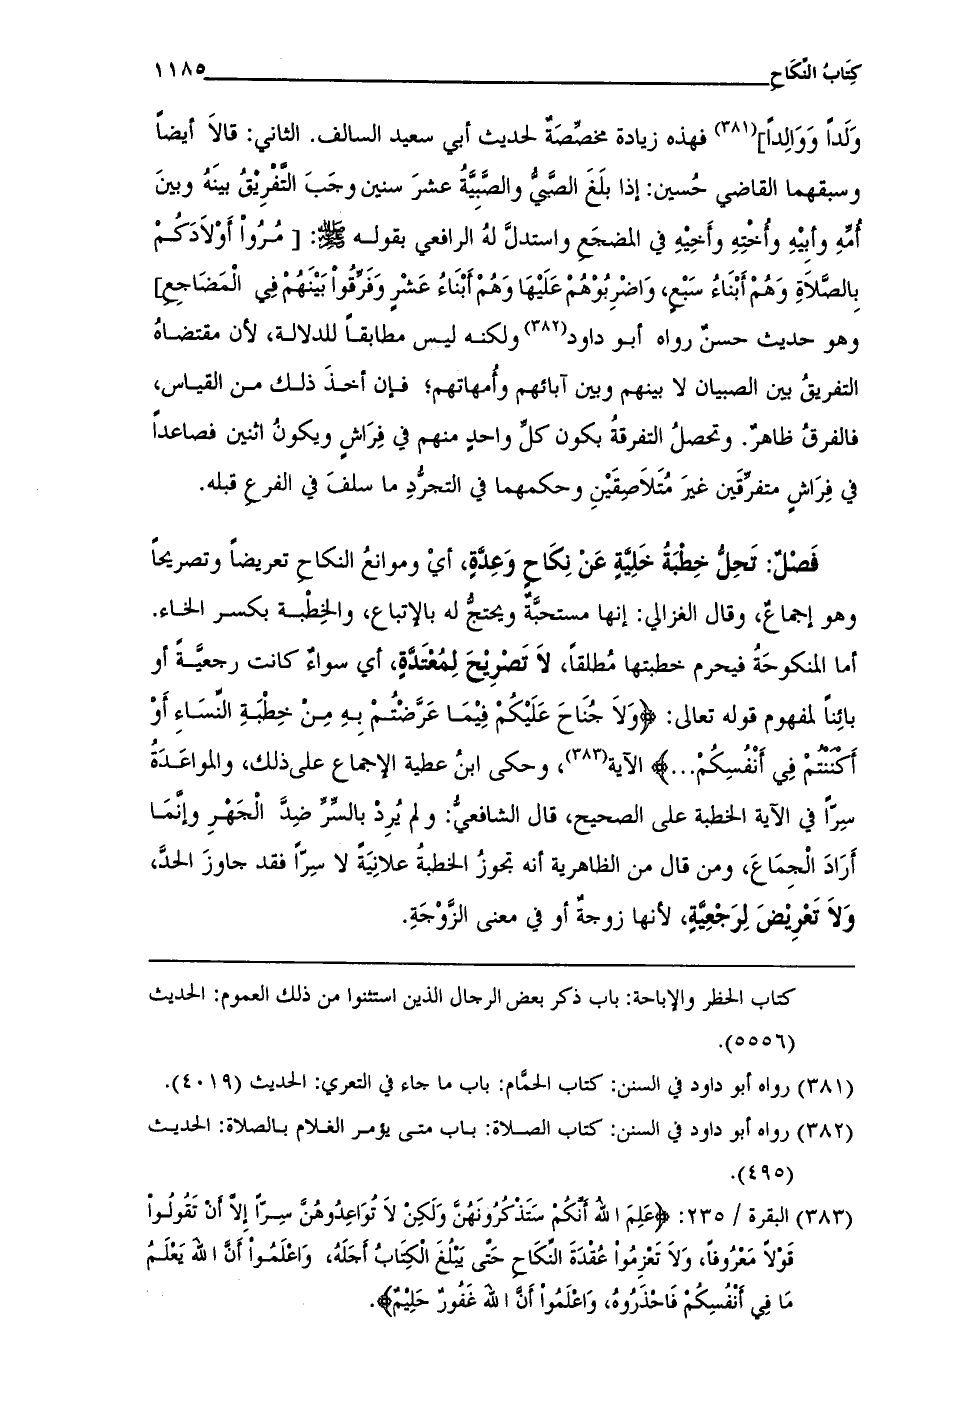 كِتَابُ النِّكَاحِ ١١٨٥
وَلَداً وَوَالِداً](٣٨١) فهذه زيادة مخصِّصَةٌ لحديث أبي سعيد السالف. الثاني: قالاَ أيضاً
وسبقهما القاضي حُسين: إذا بَلَغَ الصَّبِيُّ والصَّبِيَّةُ عشرَ سنين وجَبَ التَّفْرِيْقُ بينَهُ وبينَ
أُمِّهِ وأبِيْهِ وأُخْتِهِ وأَخِيْهِ في المضجَعِ واستدلَّ لهُ الرافعي بقولـه ﷺ: [ مُـرُواْ أَوْلاَدَكُـمْ
بِالصَّلاَةِ وَهُمْ أَبْنَاءُ سَبْعٍ، وَاضْرِبُوْهُمْ عَلَيْهَا وَهُمْ أَبْنَاءُ عَشْرٍ وَفَرِّقُواْ بَيْنَهُمْ فِي الْمَضَاجِعِ]
وهو حديث حسنٌ رواه أبـو داود(٣٨٢) ولكنـه ليـس مطابقـاً للدلالـة، لأن مقتضـاهُ
التفريقُ بين الصبيان لا بينهم وبين آبائهم وأُمهاتهم؛ فـإن أخـذَ ذلـك مـن القيـاس،
فالفرقُ ظاهرٌ. وتحصلُ التفرقةُ بكون كلِّ واحدٍ منهم في فِرَاشٍ ويكونُ اثنين فصاعداً
في فِرَاشٍ متفرِّقَين غيرَ مُتَلاَصِقَيْنِ وحكمهما في التجرُّدِ ما سلفَ في الفرعِ قبله.
فَصْلٌ: تَحِلُّ خِطْبَةُ خَلِيَّةٍ عَنْ نِكَاحٍ وَعِدَّةٍ، أيْ وموانعُ النكاحِ تعريضاً وتصريحاً
وهو إجماعٌ، وقال الغزالي: إنها مستحبَّةٌ ويحتجُّ له بالإتباع، والخِطْبــة بكسر الخاء.
أما المنكوحَةُ فيحرم خطبتها مُطلقاً، لاَ تَصْرِيْحَ لِمُعْتَدَّةٍ، أي سواءٌ كانت رجعيَّـةً أو
بائِناً لمفهوم قوله تعالى: ﴿وَلاَ جُنَاحَ عَلَيْكُمْ فِيْمَـا عَرَّضْتُـمْ بِـهِ مِـنْ خِطْبَـةِ النِّسَـاءِ أَوْ
أَكْنَنْتُمْ فِي أَنْفُسِكُمْ...﴾ الآية(٣٨٣)، وحكى ابنُ عطية الإجماع على ذلك، والمواعَـدَةُ
سِرّاً في الآية الخطبة على الصحيح، قال الشافعيُّ: ولم يُرِدْ بالسِّرِّ ضِدَّ الْجَهْـرِ وإنَّمَـا
أَرَادَ الْجِمَاعَ، ومن قال من الظاهرية أنه تجوزُ الخطبةُ علانِيَةً لا سِرّاً فقد جاوزَ الحدَّ،
وَلاَ تَعْرِيْضَ لِرَجْعِيَّةٍ، لأنها زوجةٌ أو في معنى الزَّوْجَةِ.
كتاب الحظر والإباحة: باب ذكر بعض الرجال الذين استثنوا من ذلك العموم: الحديث
(٥٥٥٦).
(٣٨١) رواه أبو داود في السنن: كتاب الحمَّام: باب ما جاء في التعري: الحديث (٤٠١٩).
(٣٨٢) رواه أبو داود في السنن: كتاب الصـلاة: بـاب متـى يؤمـر الغـلام بـالصلاة: الحديـث
(٤٩٥).
(٣٨٣) البقرة / ٢٣٥: ﴿عَلِمَ اللهُ أَنَّكُمْ سَتَذْكُرُونَهُنَّ وَلَكِنْ لاَ تُوَاعِدُوهُنَّ سِـرّاً إِلاَّ أَنْ تَقُولُـواْ
قَوْلاً مَعْرُوفاً، وَلاَ تَعْزِمُواْ عُقْدَةَ النِّكَاحِ حَتَّى يَبْلُغَ الْكِتَابُ أَجَلَهُ، وَاعْلَمُـواْ أَنَّ اللهَ يَعْلَـمُ
مَا فِي أَنْفُسِكُمْ فَاحْذَرُوهُ، وَاعْلَمُواْ أَنَّ اللهَ غَفُورٌ حَلِيْمٌ﴾.